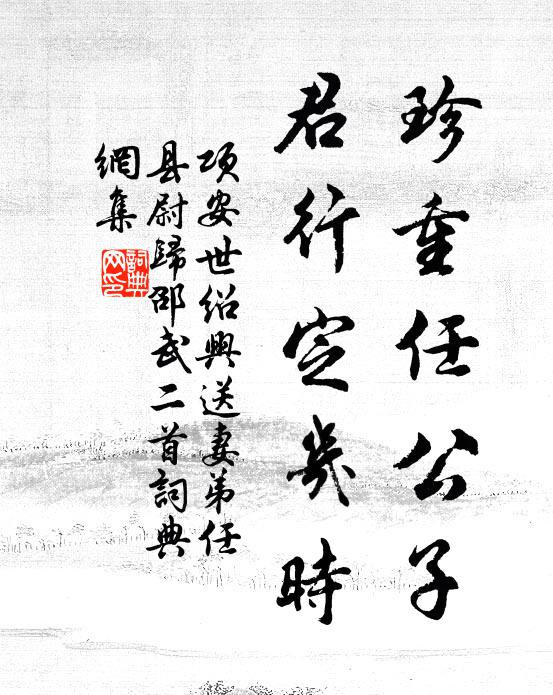 珍重任公子
君行定幾時
项安世绍興送妻弟任
县尉歸邵武二首詞典
網集
詞典网印